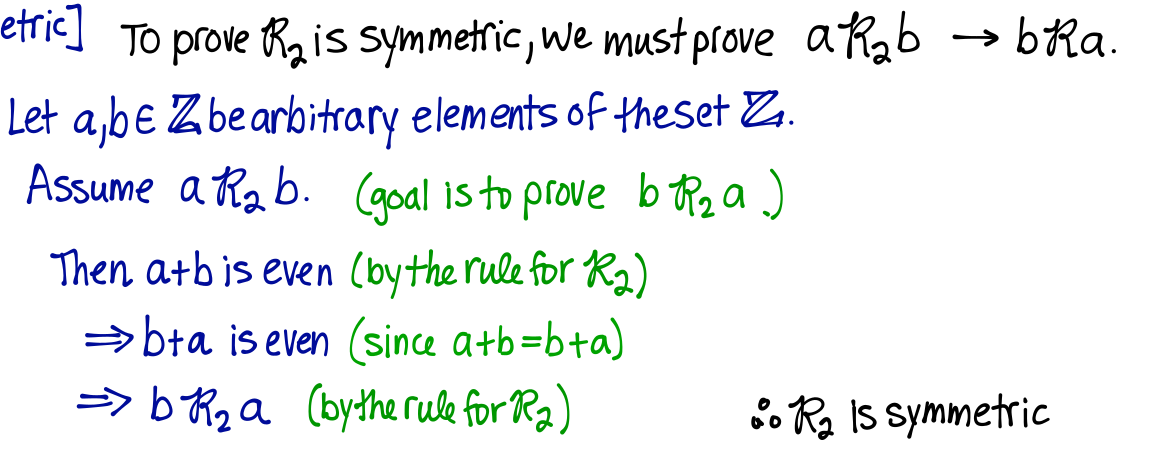 etric] To prove R₂ is symmetric, we must prove a R₂ b → b R a.
Let a,b ∈ ℤ be arbitrary elements of the set ℤ.
Assume a R₂ b. (goal is to prove b R₂ a.)
Then a+b is even (by the rule for R₂)
⇒ b+a is even (since a+b=b+a)
⇒ b R₂ a (by the rule for R₂) ∴ R₂ is symmetric